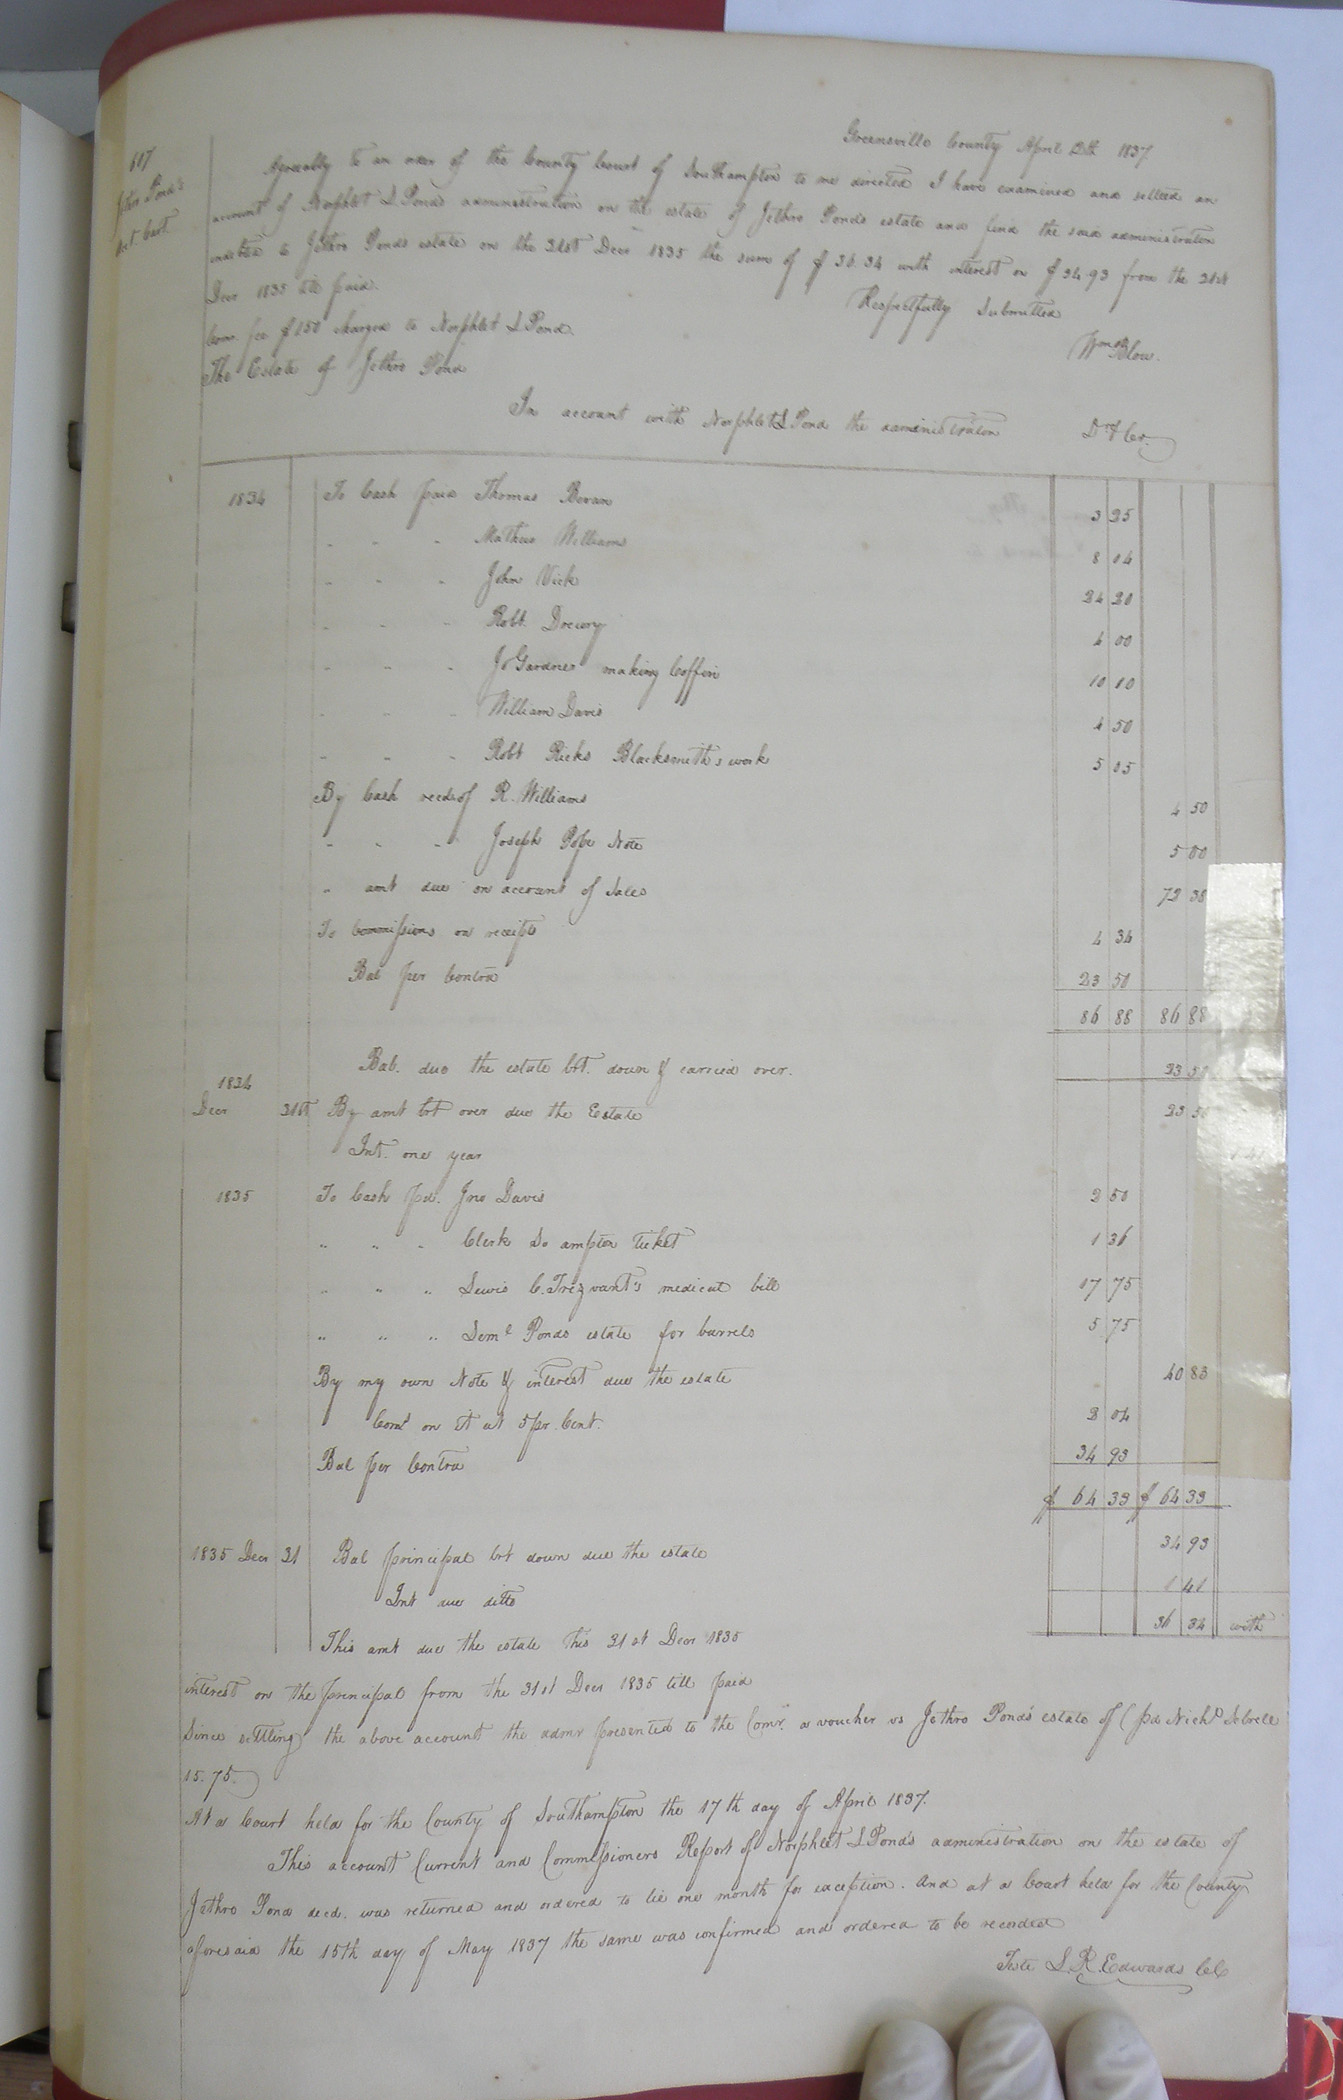 617
Jethro Pond's
Act. Curt.
Greensville County April 12th 1837
Agreeably to an order of the County Court of Southampton to me directed I have examined and settled an
account of Norphlet S. Pond's administration on the estate of Jethro Ponds estate and find the said administration
indebted to Jethro Ponds estate on the 31st Decr 1835 the sum of $36.34 with interest on $34.93 from the 31st
Decr 1835 till paid.
Respectfully Submitted
Com. fee $1.50 charged to Norphlet S Pond.
Wm Blow.
The Estate of Jethro Pond
In account with Norphlet S Pond the administrator Dr & Cr.
1834 To Cash paid Thomas 3 25
" " " Mathew Williams 8 04
" " " John Vick 24 20
" " " Robt. Drewry 4 00
" " " Jo Gardner making Coffin 10 00
" " " William Davis 4 50
" " " Robt Ricks Blacksmith's work 5 05
By Cash recd of R. Williams 4 50
" " " Joseph Pope Note 5 00
" amt due on account of Sales 72 38
To Commissions on receipts 4 34
Bal per Contra 23 50
86 88 86 88
Bal. due the estate brt. down & carried over. 23 50
1834
Decr 31st By amt brt over due the Estate 23 50
Int. one year 1 41
1835 To Cash pd. Jno Davis 2 50
" " " Clerk So ampton ticket 1 36
" " " Lewis C. Trezvant's medical bill 17 75
" " " Seml Ponds estate for barrels 5 75
By my own Note & interest due the estate 40 83
Coms on it at 5 pr. Cent. 2 04
Bal per Contra 34 93
$ 64 33 $ 64 33
1835 Decr 31 Bal principal brt down due the estate 34 93
Int due ditto 1 41
This amt due the estate this 31st Decr 1835 36 34 with
interest on the principal from the 31st Decr 1835 till paid
Since settling the above account the admr presented to the Comr. a voucher vs Jethro Pond's estate of (pd Nichs
15.75.)
At a Court held for the County of Southampton the 17th day of April 1837.
This account Current and Commissioners Report of Norphlet S Pond's administration on the estate of
Jethro Pond decd. was returned and ordered to lie one month for exception. And at a Court held for the County
aforesaid the 15th day of May 1837 the same was confirmed and ordered to be recorded
Teste L. R. Edwards ClC